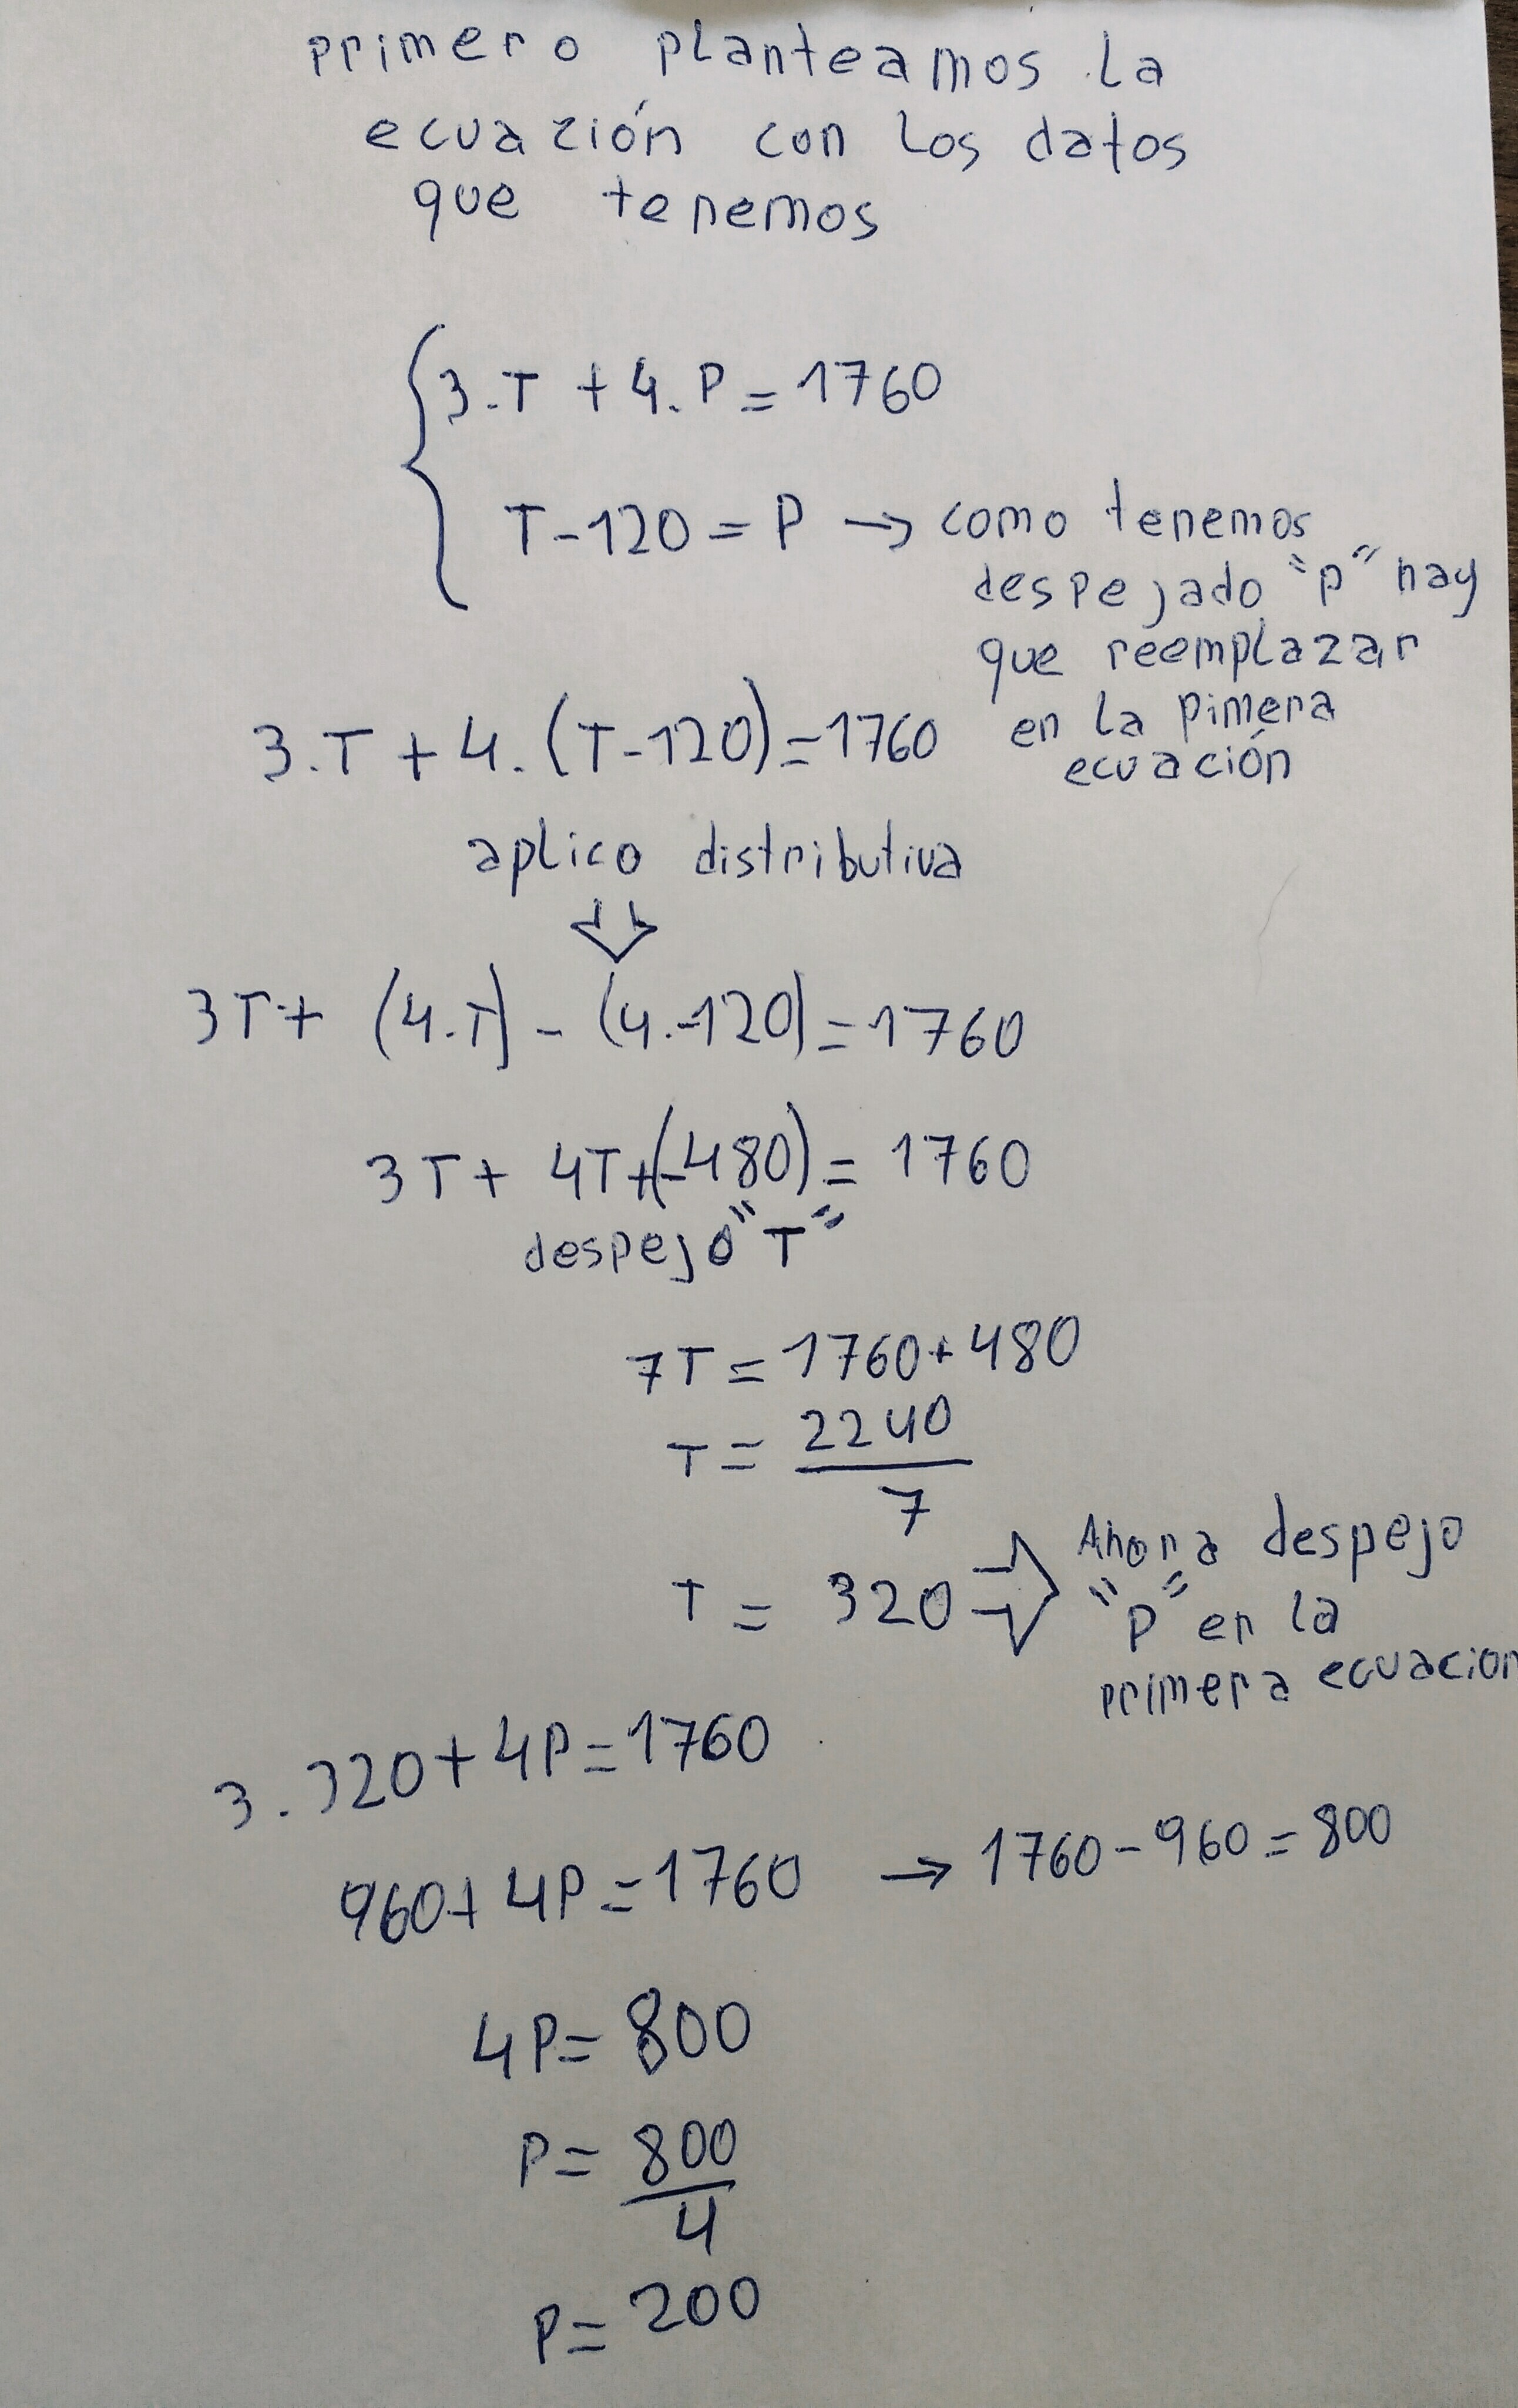 primero planteamos la
ecuazión con los datos
que tenemos
3.T + 4.P = 1760
T-120 = P → como tenemos
despejado "p" hay
que reemplazar
en la pimera
ecuación
3.T + 4.(T-120)=1760
aplico distributiva
3T+ (4.T) - (4.-120)=1760
3T+ 4T+(-480)= 1760
despejo "T"
7T = 1760+480
T = 2240/7
T = 320 ⇒ Ahora despejo
"P" en la
primera ecuacion
3.320+4P=1760
960+4P=1760 → 1760-960=800
4P= 800
P= 800/4
P= 200